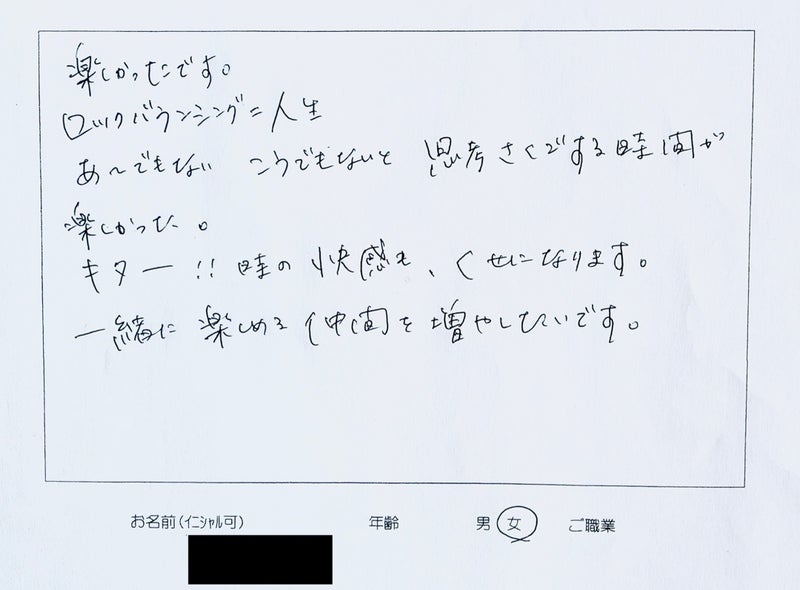 楽しかったです。
ロックバランシング=人生
あ〜でもない こうでもないと 思考さくごする時間が
楽しかった。
キター!! 時の快感も、くせになります。
一緒に楽しめる仲間を増やしたいです。
お名前(イニシャル可) 年齢 男 女 ご職業